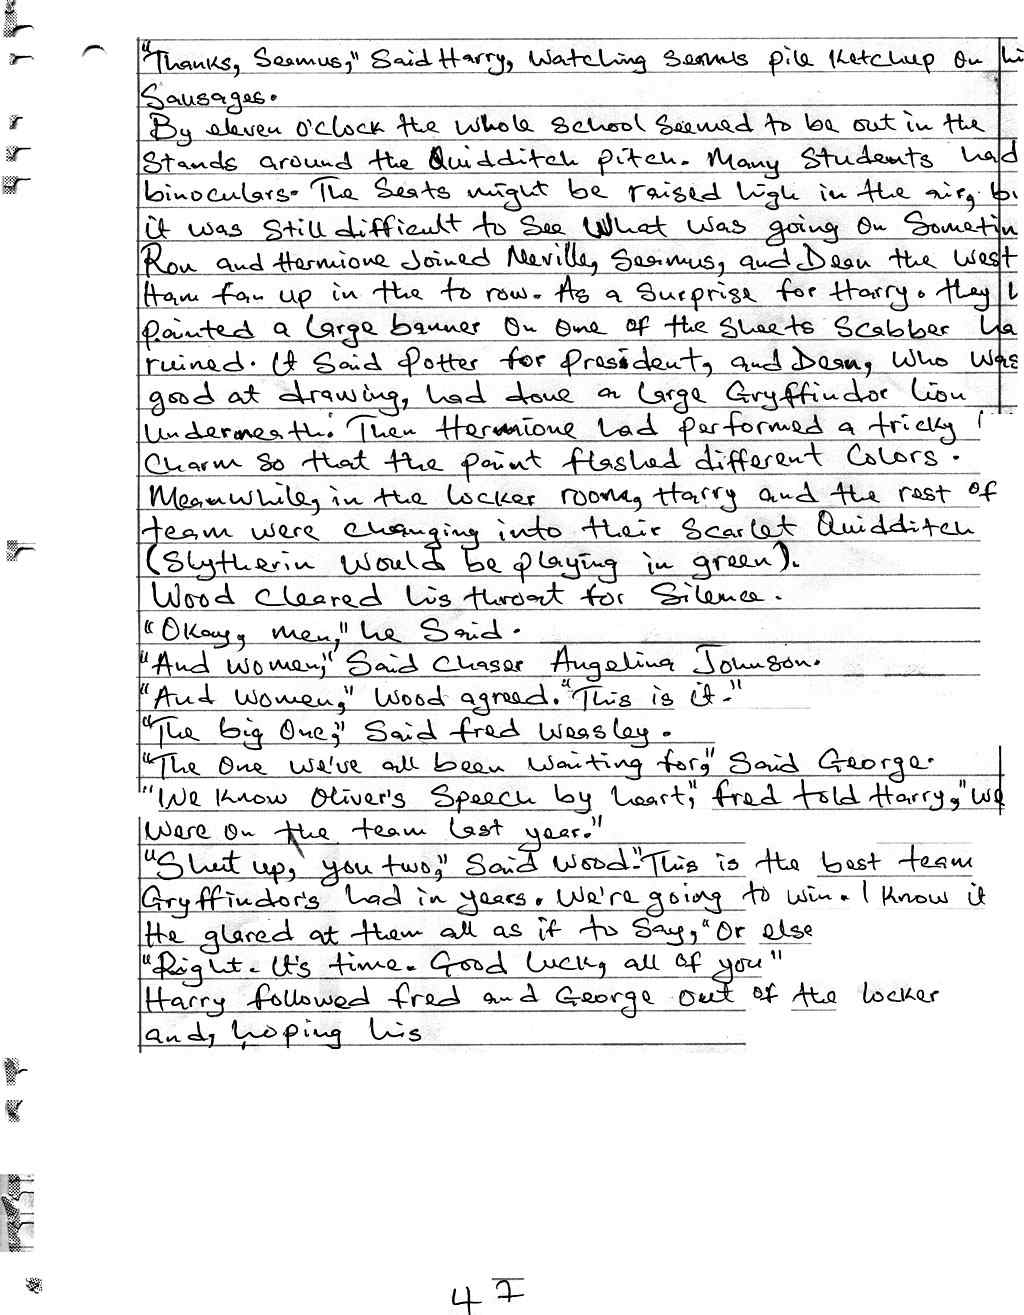 "Thanks, Seamus," Said Harry, Watching Seamus pile Ketchup on hi
Sausages.
By eleven o'clock the whole school seemed to be out in the
Stands around the Quidditch pitch. Many Students had
binoculars. The Seats might be raised high in the air, bu
it was Still difficult to See What was going on Sometim
Ron and Hermione Joined Neville, Seamus, and Dean the west
Ham fan up in the to row. As a Surprise for Harry. they h
painted a large banner on one of the sheets Scabber ha
ruined. It Said Potter for president, and Dean, Who was
good at drawing, had done a large Gryffindor lion
Underneath. Then Hermione had performed a tricky l
Charm So that the paint flashed different Colors.
Meanwhile, in the locker room, Harry and the rest of
team were changing into their Scarlet Quidditch
(Slytherin Would be playing in green).
Wood Cleared his throat for Silence.
"Okay, men," he Said.
"And women," Said Chaser Angelina Johnson.
"And Women," Wood agreed. "This is it."
"The big One," Said fred weasley.
"The One we've all been Waiting for," Said George.
"We Know Oliver's Speech by heart," fred told Harry, "we
were on the team last year."
"Shut up, you two," Said Wood. "This is the best team
Gryffindor's had in years. We're going to win. I Know it
He glared at them all as if to Say, "Or else
"Right. It's time. Good luck, all of you"
Harry followed fred and George out of the locker
and, hoping his
47